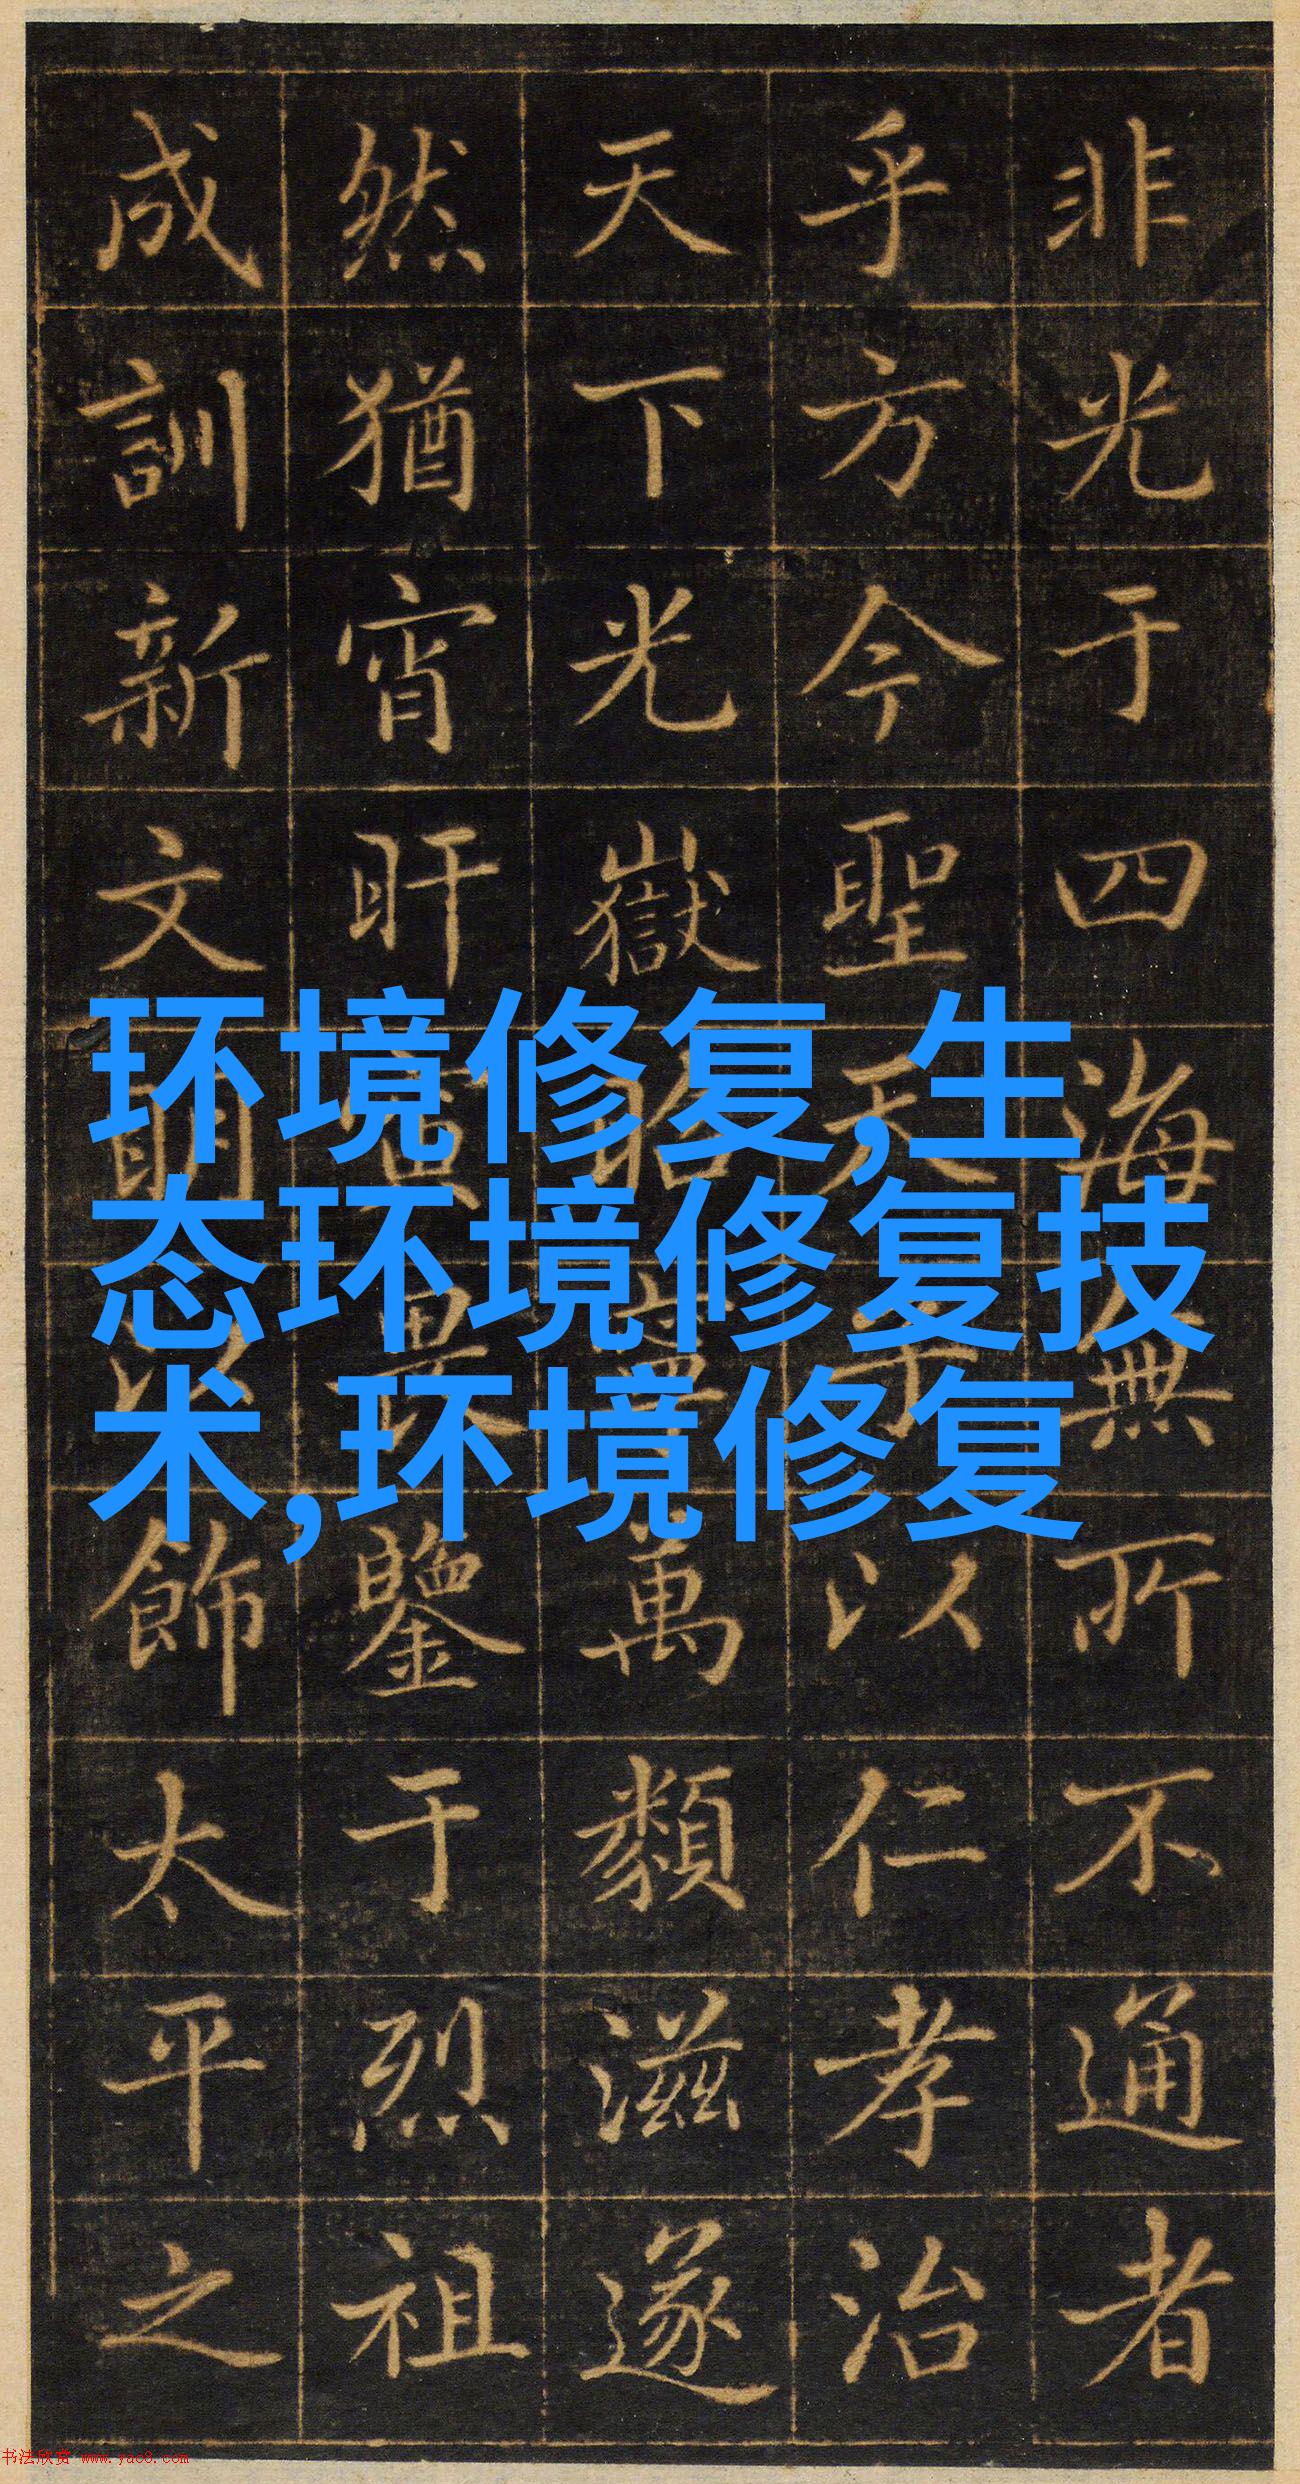 非光于四海無所不通者
乎方今聖天子以仁孝治
天下光嶽昭寧萬類滋遂
然猶宵旰寅畏鑒于烈祖
成訓新文明以飾太平之
环境修复,生
态环境修复技
术,环境修复
书法欣赏 www.yac8.com